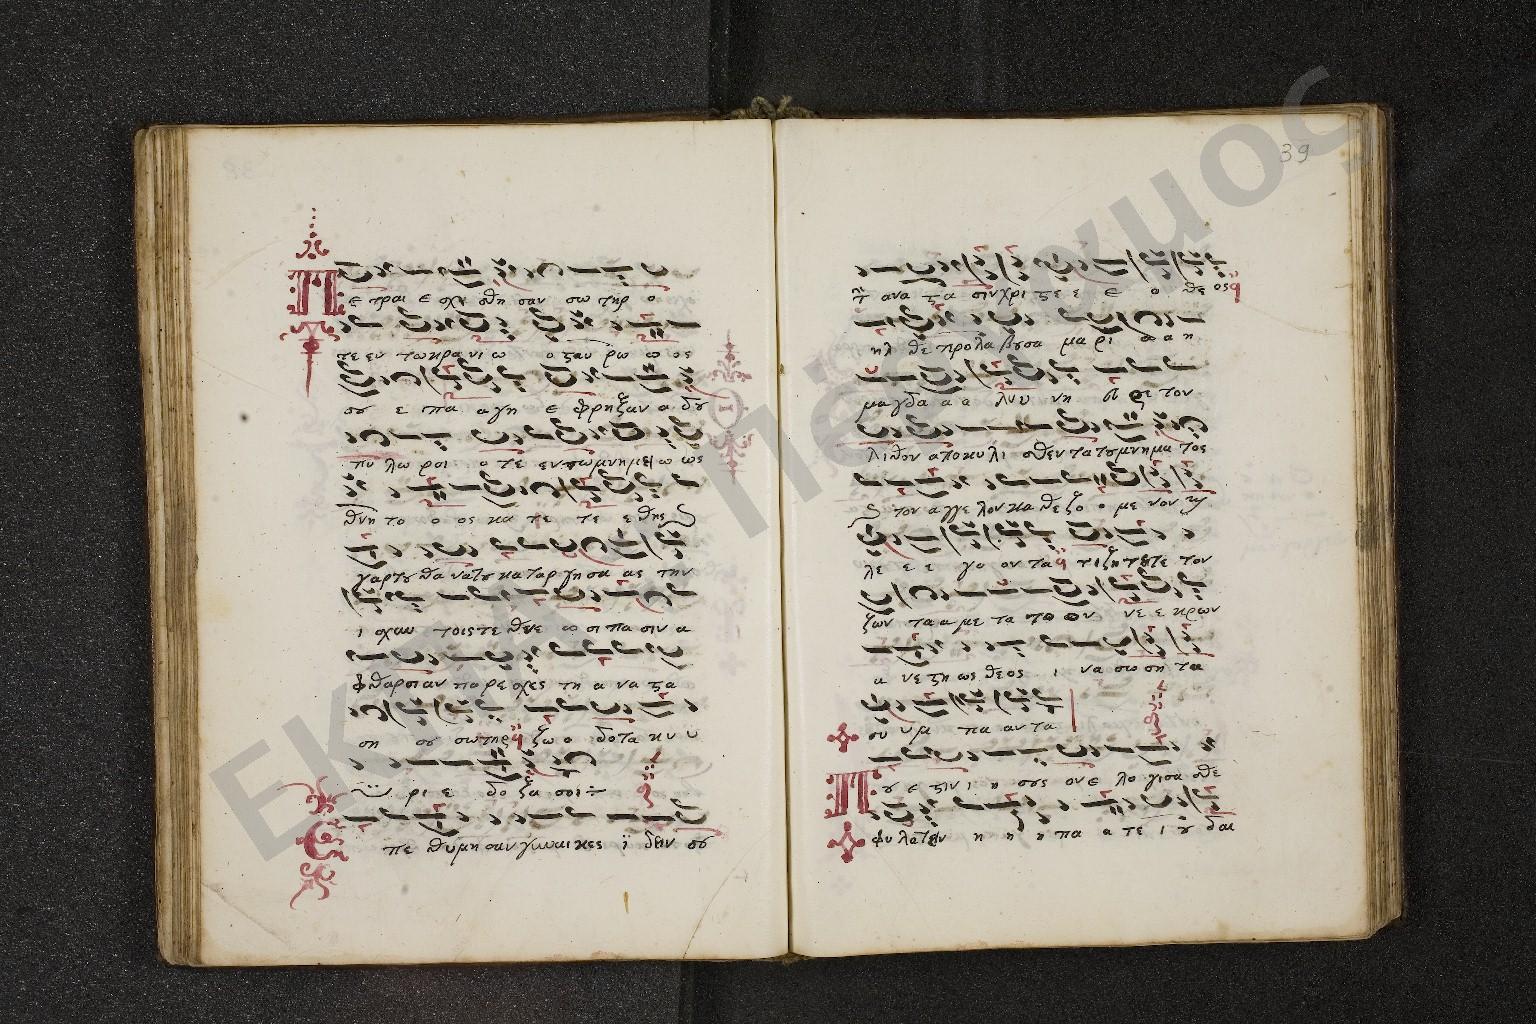 Πε τραι ε σχι σθη σαν σω τηρ ο
τε εν τω κρα νι ω ο ςαυ ρω ω ος
σου ε πα α γη ε φρηξαν α δου
πυ λω ροι ο τε εν τω μνημει ω ως
θνη το ο ος κα τε τε ε θης
γαρ του θα να του κα ταρ γη σα ας την
ι σχυν τοις τε θνε ω σι πα σιν α
φθαρσιαν πα ρε σχες τη α να ςα
ση σου σωτηρ ζω ο δοτα κυ υ
υ ρι ε δο ξα σοι
Ε πε θυμη σαν γυναι κες ϊ δειν σου
τ ανα ςα σιν χρι ςε ε ε ο θε ος
ηλ θε προλα βουσα μα ρι α α η
μαγδα α α λυυ νη ευ ρε τον
λιθον αποκυλι σθεν τα του μνημα τος
κ τον αγγε λον κα θεζο ο με νον κ
λε ε ε γο ον τα τι ζητειτε τον
ζων τα α με τα των ων νε ε κρων
α νε ςη ως θεος ι να σω ση τα
συ υμ πα αν τα
Που ε ςιν ι η σους ον ε λο γισα σθε
φυ λατειν η η η πα α τε ι ου δαι
39
ΕΚΠΑ
Πέργαμος